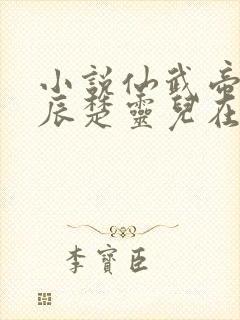 小説仙武帝
辰楚靈兒在
李寶臣